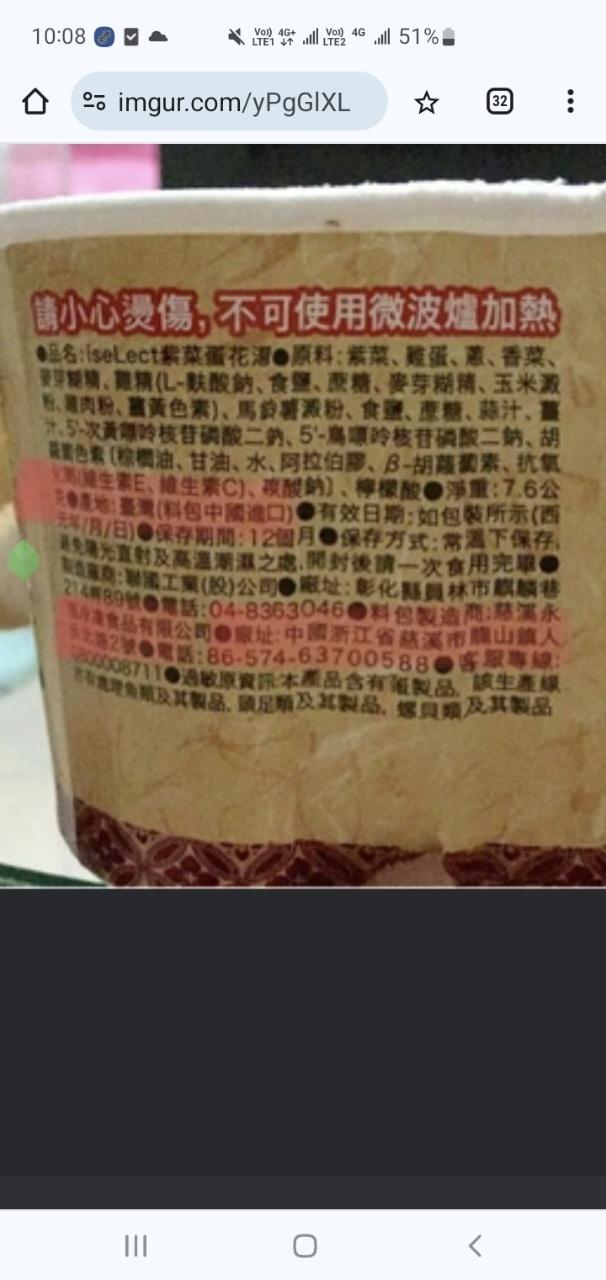 10:08
Vo)) 4G+ Vo)) 4G 51%
LTE1 LTE2
imgur.com/yPgGlXL
32
請小心燙傷,不可使用微波爐加熱
●品名:iseLect紫菜蛋花湯●原料:紫菜、雞蛋、蔥、香菜、
麥芽糊精、雞精(L-麩酸鈉、食鹽、蔗糖、麥芽糊精、玉米澱
粉、雞肉粉、薑黃色素)、馬鈴薯澱粉、食鹽、蔗糖、蒜汁、薑
汁、5'-次黃嘌呤核苷磷酸二鈉、5'-鳥嘌呤核苷磷酸二鈉、胡
蘿蔔色素〔棕櫚油、甘油、水、阿拉伯膠、β-胡蘿蔔素、抗氧
化劑(維生素E、維生素C)、碳酸鈉〕、檸檬酸●淨重:7.6公
克●產地:臺灣(料包中國進口)●有效日期:如包裝所示(西
元年/月/日)●保存期間:12個月●保存方式:常溫下保存,
避免陽光直射及高溫潮濕之處,開封後請一次食用完畢●
製造廠商:聯國工業(股)公司●廠址:彰化縣員林市麒麟巷
214弄89號●電話:04-8363046●料包製造商:慈溪永
冷凍食品有限公司●廠址:中國浙江省慈溪市龍山鎮人
北路2號●電話:86-574-63700588●客服專線:
0800008711●過敏原資訊:本產品含有蛋製品,該生產線
亦有處理魚類及其製品,頭足類及其製品,螺貝類及其製品